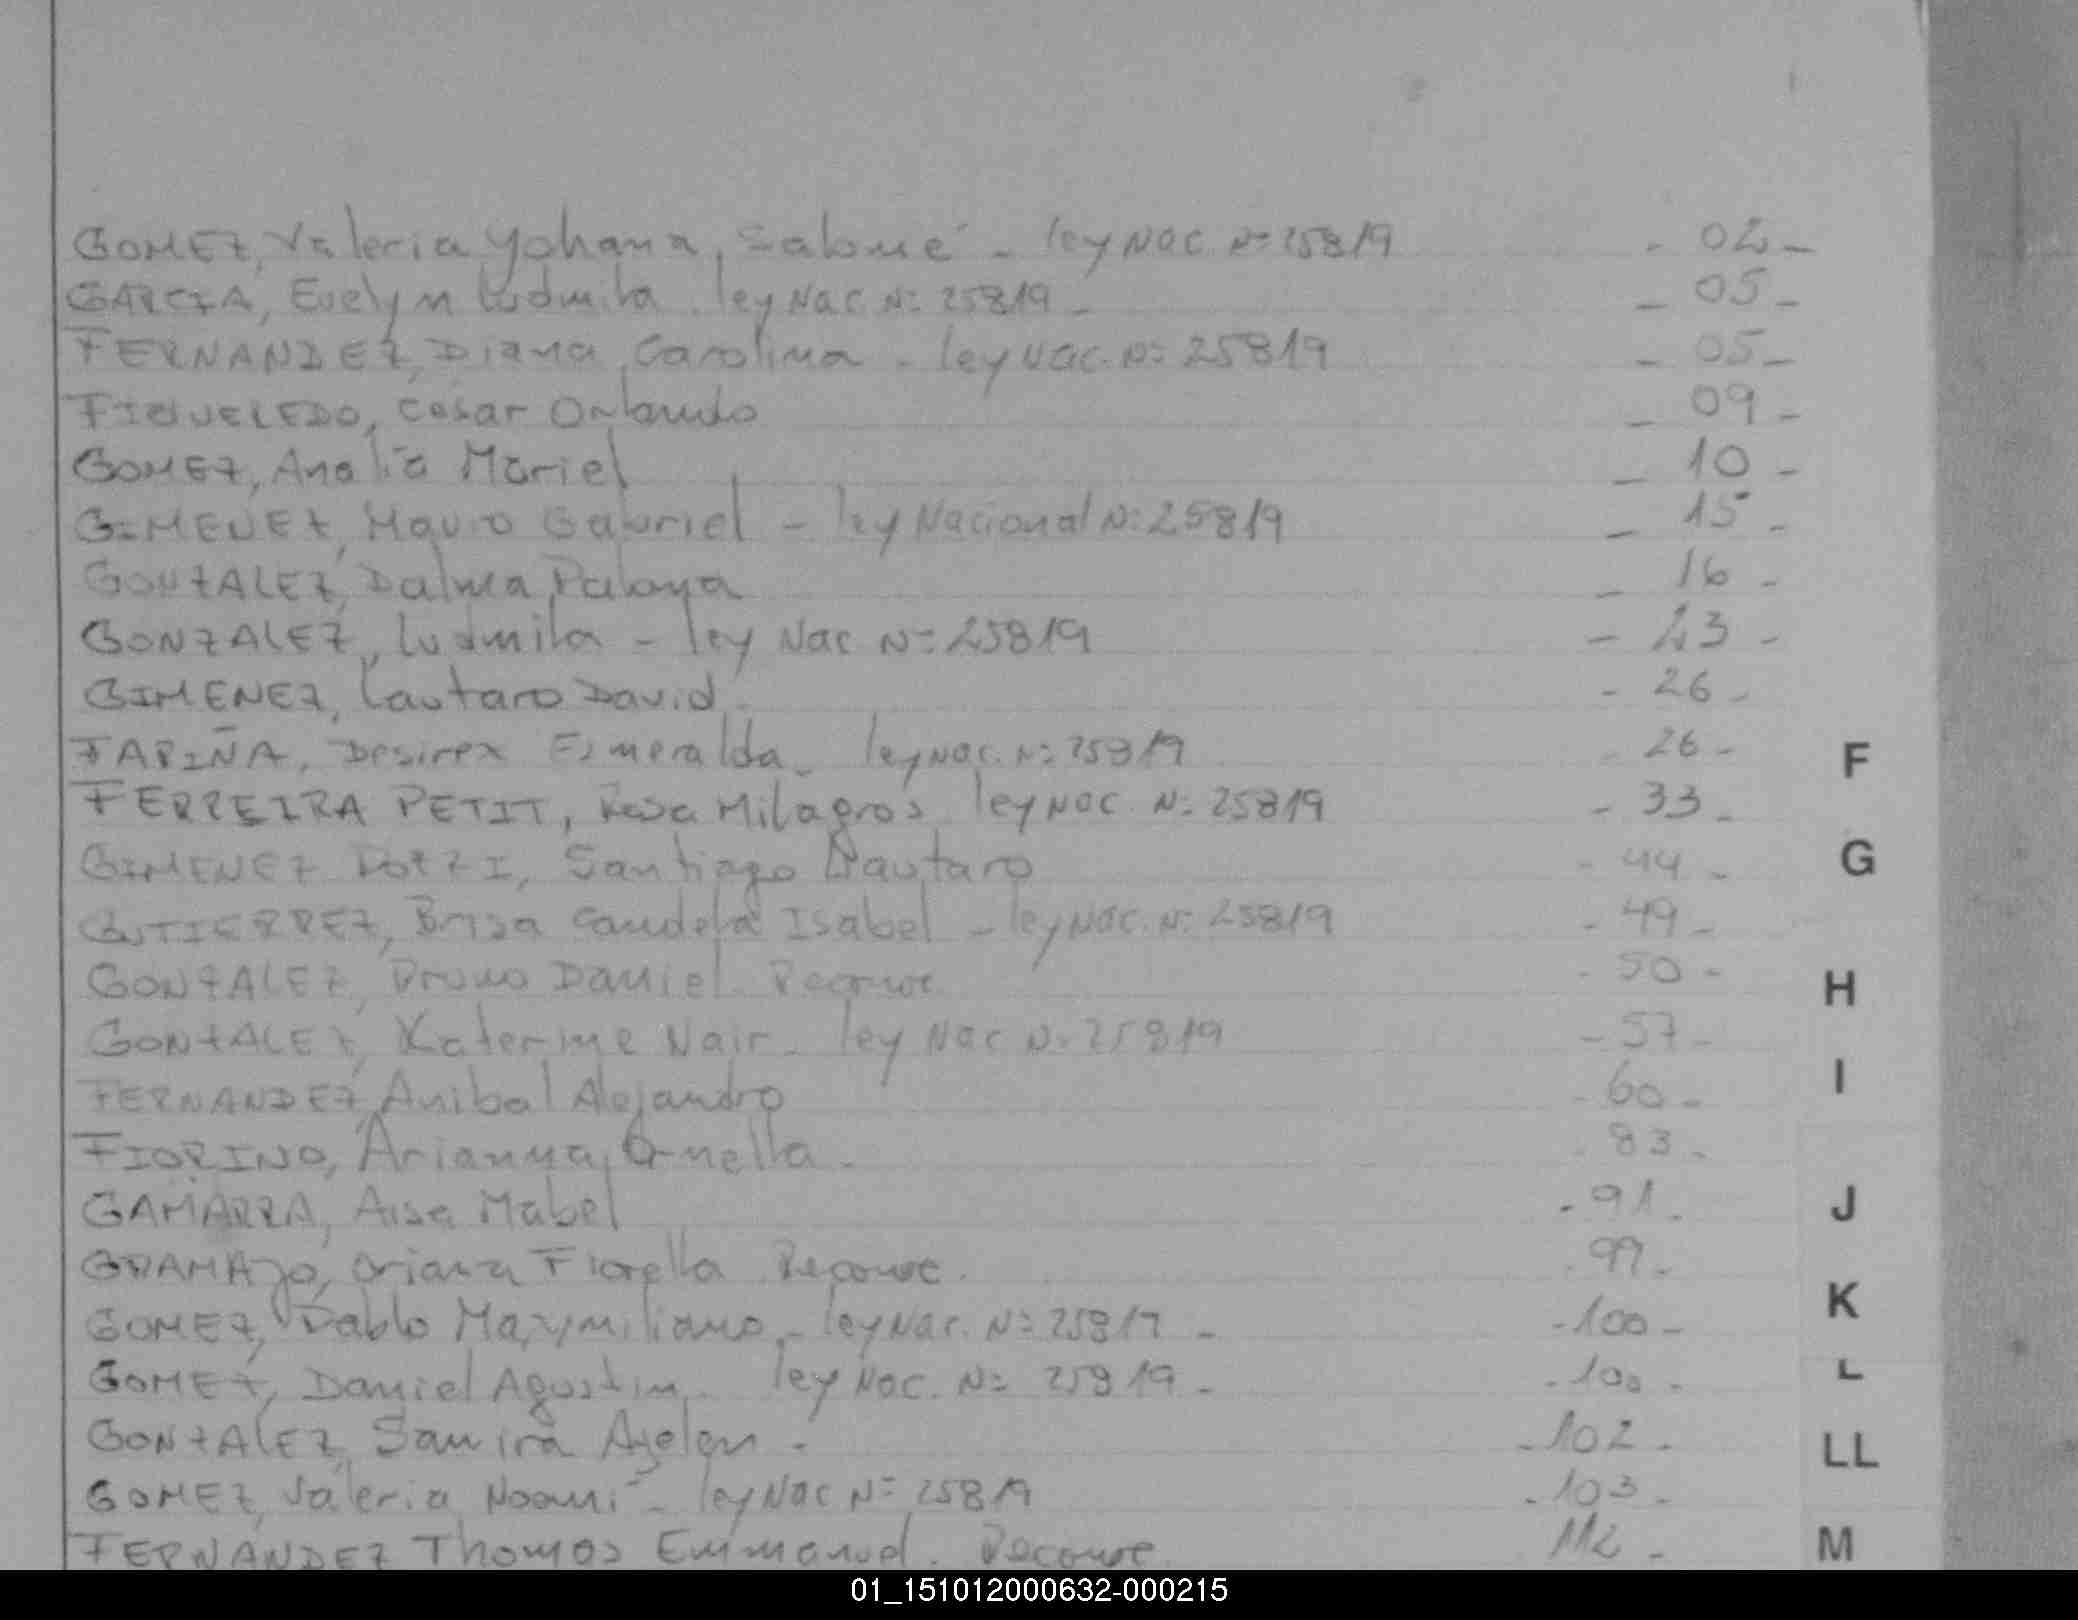 GOMEZ, Valeria Yohana, Salomé - ley Nac. Nº 25819 - 02 -
GARCIA, Evelyn Ludmila. ley Nac. Nº 25819 - - 05 -
FERNANDEZ, Diana Carolina - ley Nac. Nº 25819 - 05 -
FIGUEREDO, Cesar Orlando - 09 -
GOMEZ, Analía Mariel - 10 -
GIMENEZ, Mauro Gabriel - ley Nacional Nº 25819 - 15 -
GONZALEZ, Dalma - 16 -
GONZALEZ, Ludmila - ley Nac Nº 25819 - 23 -
GIMENEZ, Lautaro David - 26 -
FARIÑA, Desirex Esmeralda - ley Nac. Nº 25819 - 26 -
F
FERREIRA PETIT, Rosa Milagros ley Nac. Nº 25819 - 33 -
GIMENEZ POZZI, Santiago Lautaro - 44 -
G
GUTIERREZ, Brisa Candela Isabel - ley Nac. Nº 25819 - 49 -
GONZALEZ, Bruno Daniel. Reconoc - 50 -
H
GONZALEZ, Katerine Nair - ley Nac Nº 25819 - 57 -
FERNANDEZ, Anibal Alejandro - 60 -
I
FIORINO, Arianna Ornella - - 83 -
GAMARRA, Aisa Mabel - 91 -
J
GRAMAJO, Oriana Fiorella Reconoc. 99 -
GOMEZ, Pablo Maximiliano - ley Nac. Nº 25819 - - 100 -
K
GOMEZ, Daniel Agustin - ley Nac. Nº 25819 - - 100 -
L
GONZALEZ, Samira Ayelen - - 102 -
LL
GOMEZ, Valeria Noemí - ley Nac Nº 25819 - 103 -
FERNANDEZ Thomas Emmanuel. Reconoc 112 -
M
01_151012000632-000215